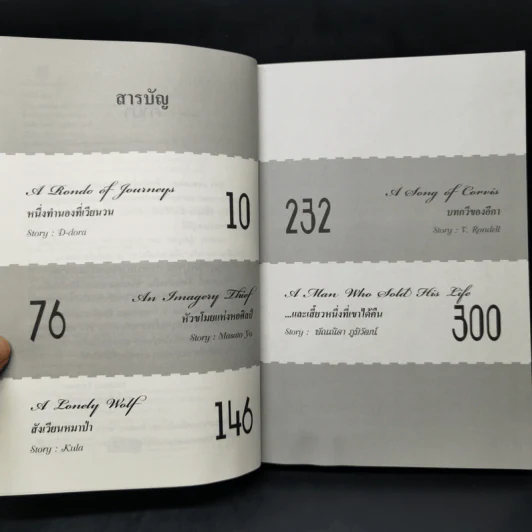 สารบัญ
A Rondo of Journeys
หนึ่งทำนองที่เวียนวน
Story : D-dora
10
An Imagery Thief
หัวขโมยแห่งหอศิลป์
Story : Masato Yu
76
A Lonely Wolf
สังเวียนหมาป่า
Story : Kula
146
A Song of Corvis
บทกวีของอีกา
Story : V. Rondell
232
A Man Who Sold His Life
...และเสี้ยวหนึ่งที่เขาได้คืน
Story : พัณณิดา ภูมิวัฒน์
300